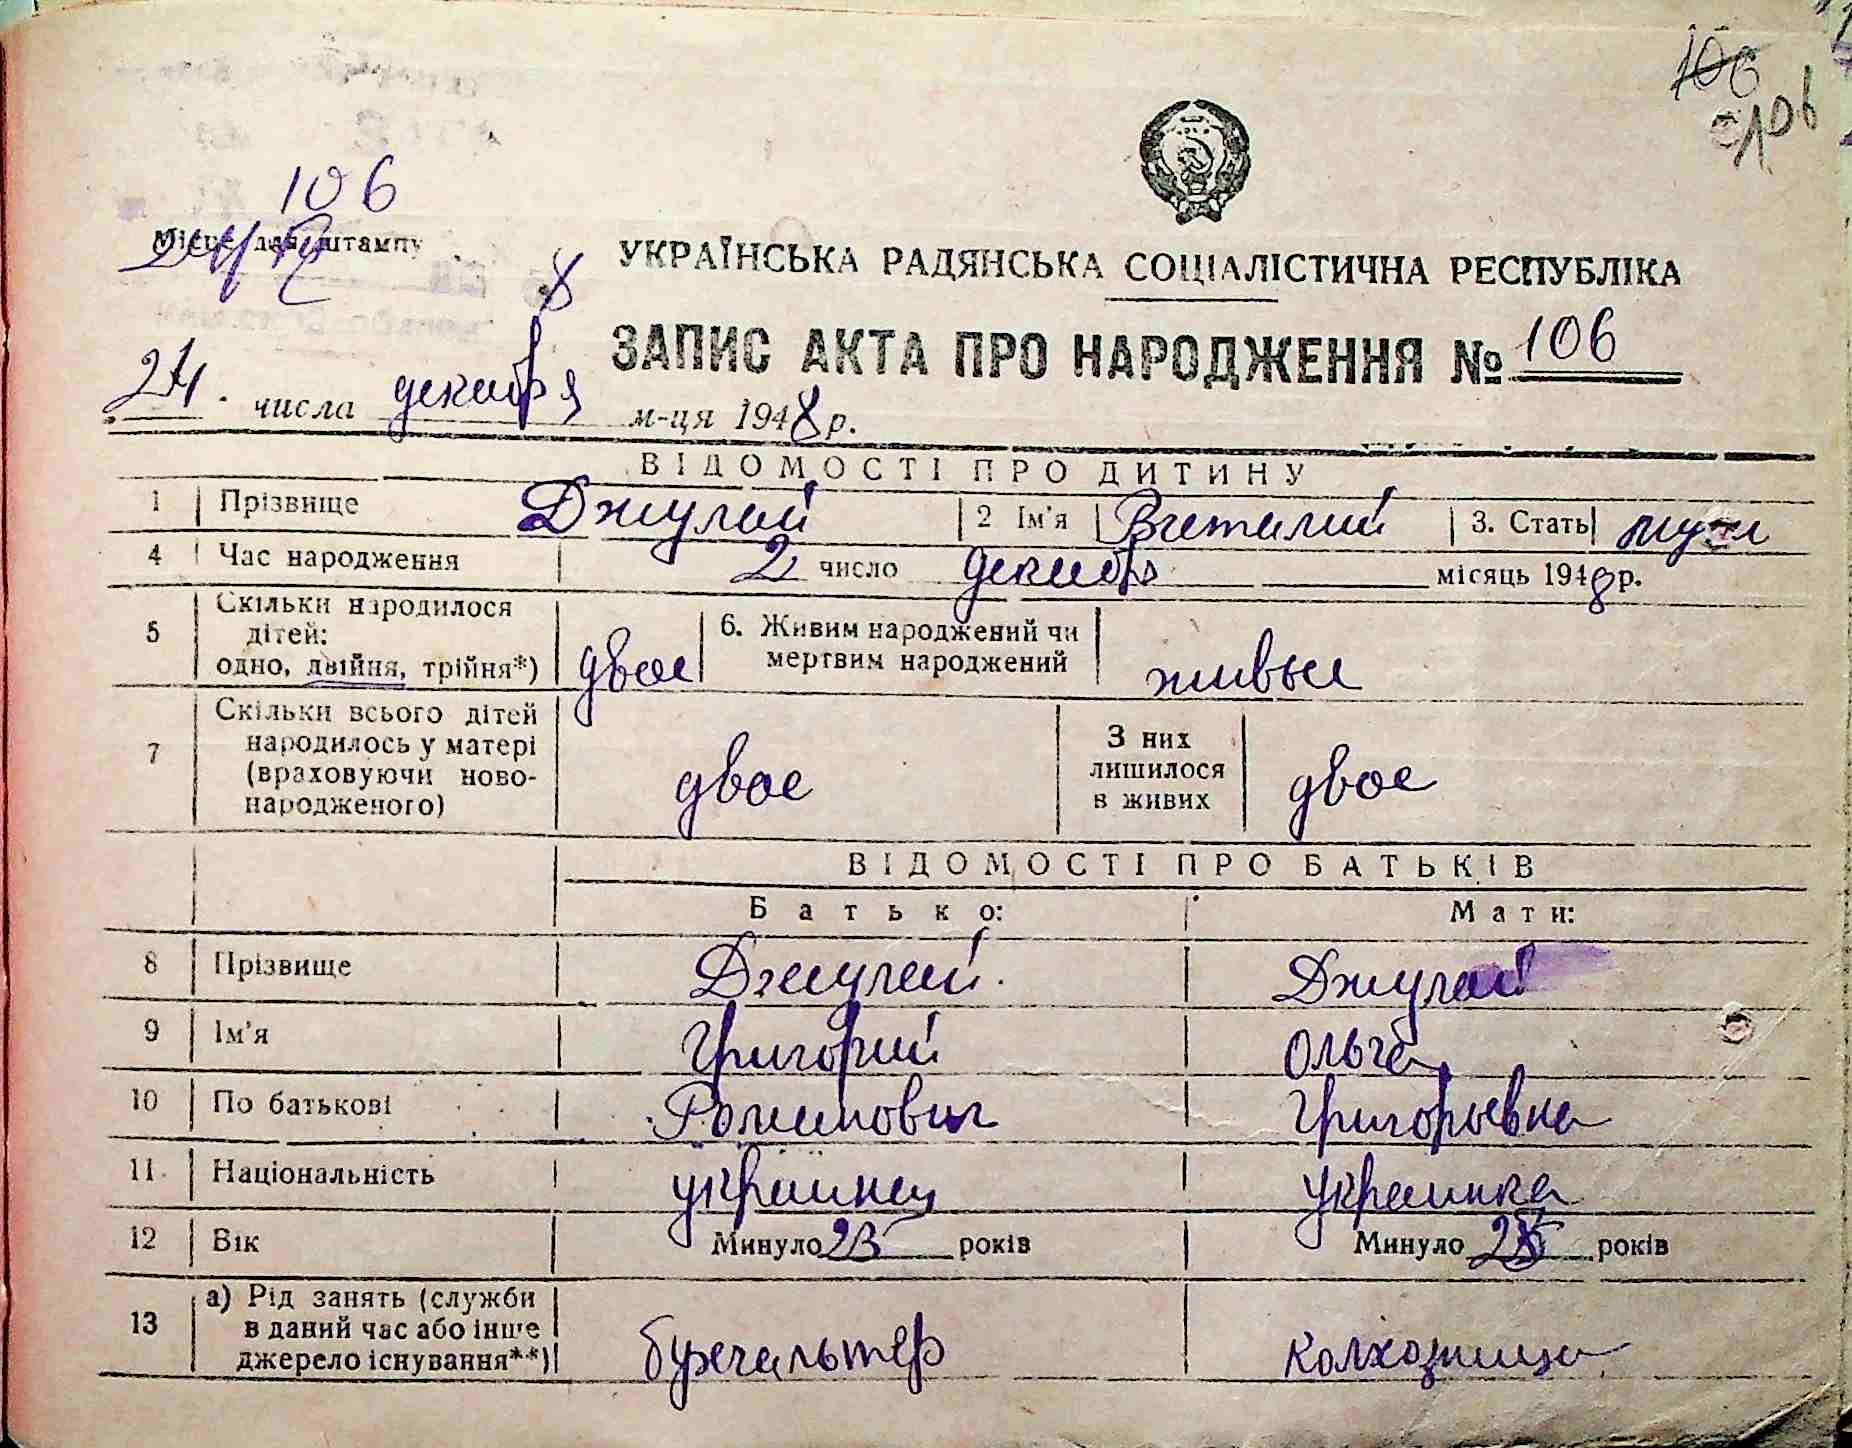 106
106
106
Місце для штампу
УКРАЇНСЬКА РАДЯНСЬКА СОЦІАЛІСТИЧНА РЕСПУБЛІКА
ЗАПИС АКТА ПРО НАРОДЖЕННЯ № 106
24 числа декабря м-ця 1948 р.
ВІДОМОСТІ ПРО ДИТИНУ
1 Прізвище Джулай 2 Ім'я Виталий 3. Стать муж
4 Час народження 2 число декабря місяць 1948 р.
5 Скільки народилося
дітей:
одно, двійня, трійня*) двое
6. Живим народжений чи
мертвим народжений живые
7 Скільки всього дітей
народилось у матері
(враховуючи ново-
народженого) двое
З них
лишилося
в живих двое
ВІДОМОСТІ ПРО БАТЬКІВ
Батько: Мати:
8 Прізвище Джулай Джулай
9 Ім'я Григорий Ольга
10 По батькові Романович Григорьевна
11 Національність украинец украинка
12 Вік Минуло 23 років Минуло років
13 а) Рід занять (служби
в даний час або інше
джерело існування**) бухгальтер колхозница